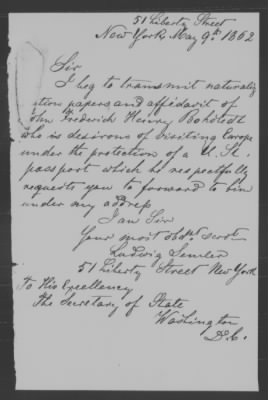 51 Liberty Street
New York May 9th 1862
Sir
I beg to transmit naturaliz
ation papers and affidavit of
John Frederick Henry
who is desirous of visiting Europe
under the protection of a U. St.
passport which he respectfully
requests you to forward to him
under my address
I am Sir
Your most obdt. servt
Ludwig Semler
51 Liberty Street New York
To His Excellency
The Secretary of State
Washington
D.C.